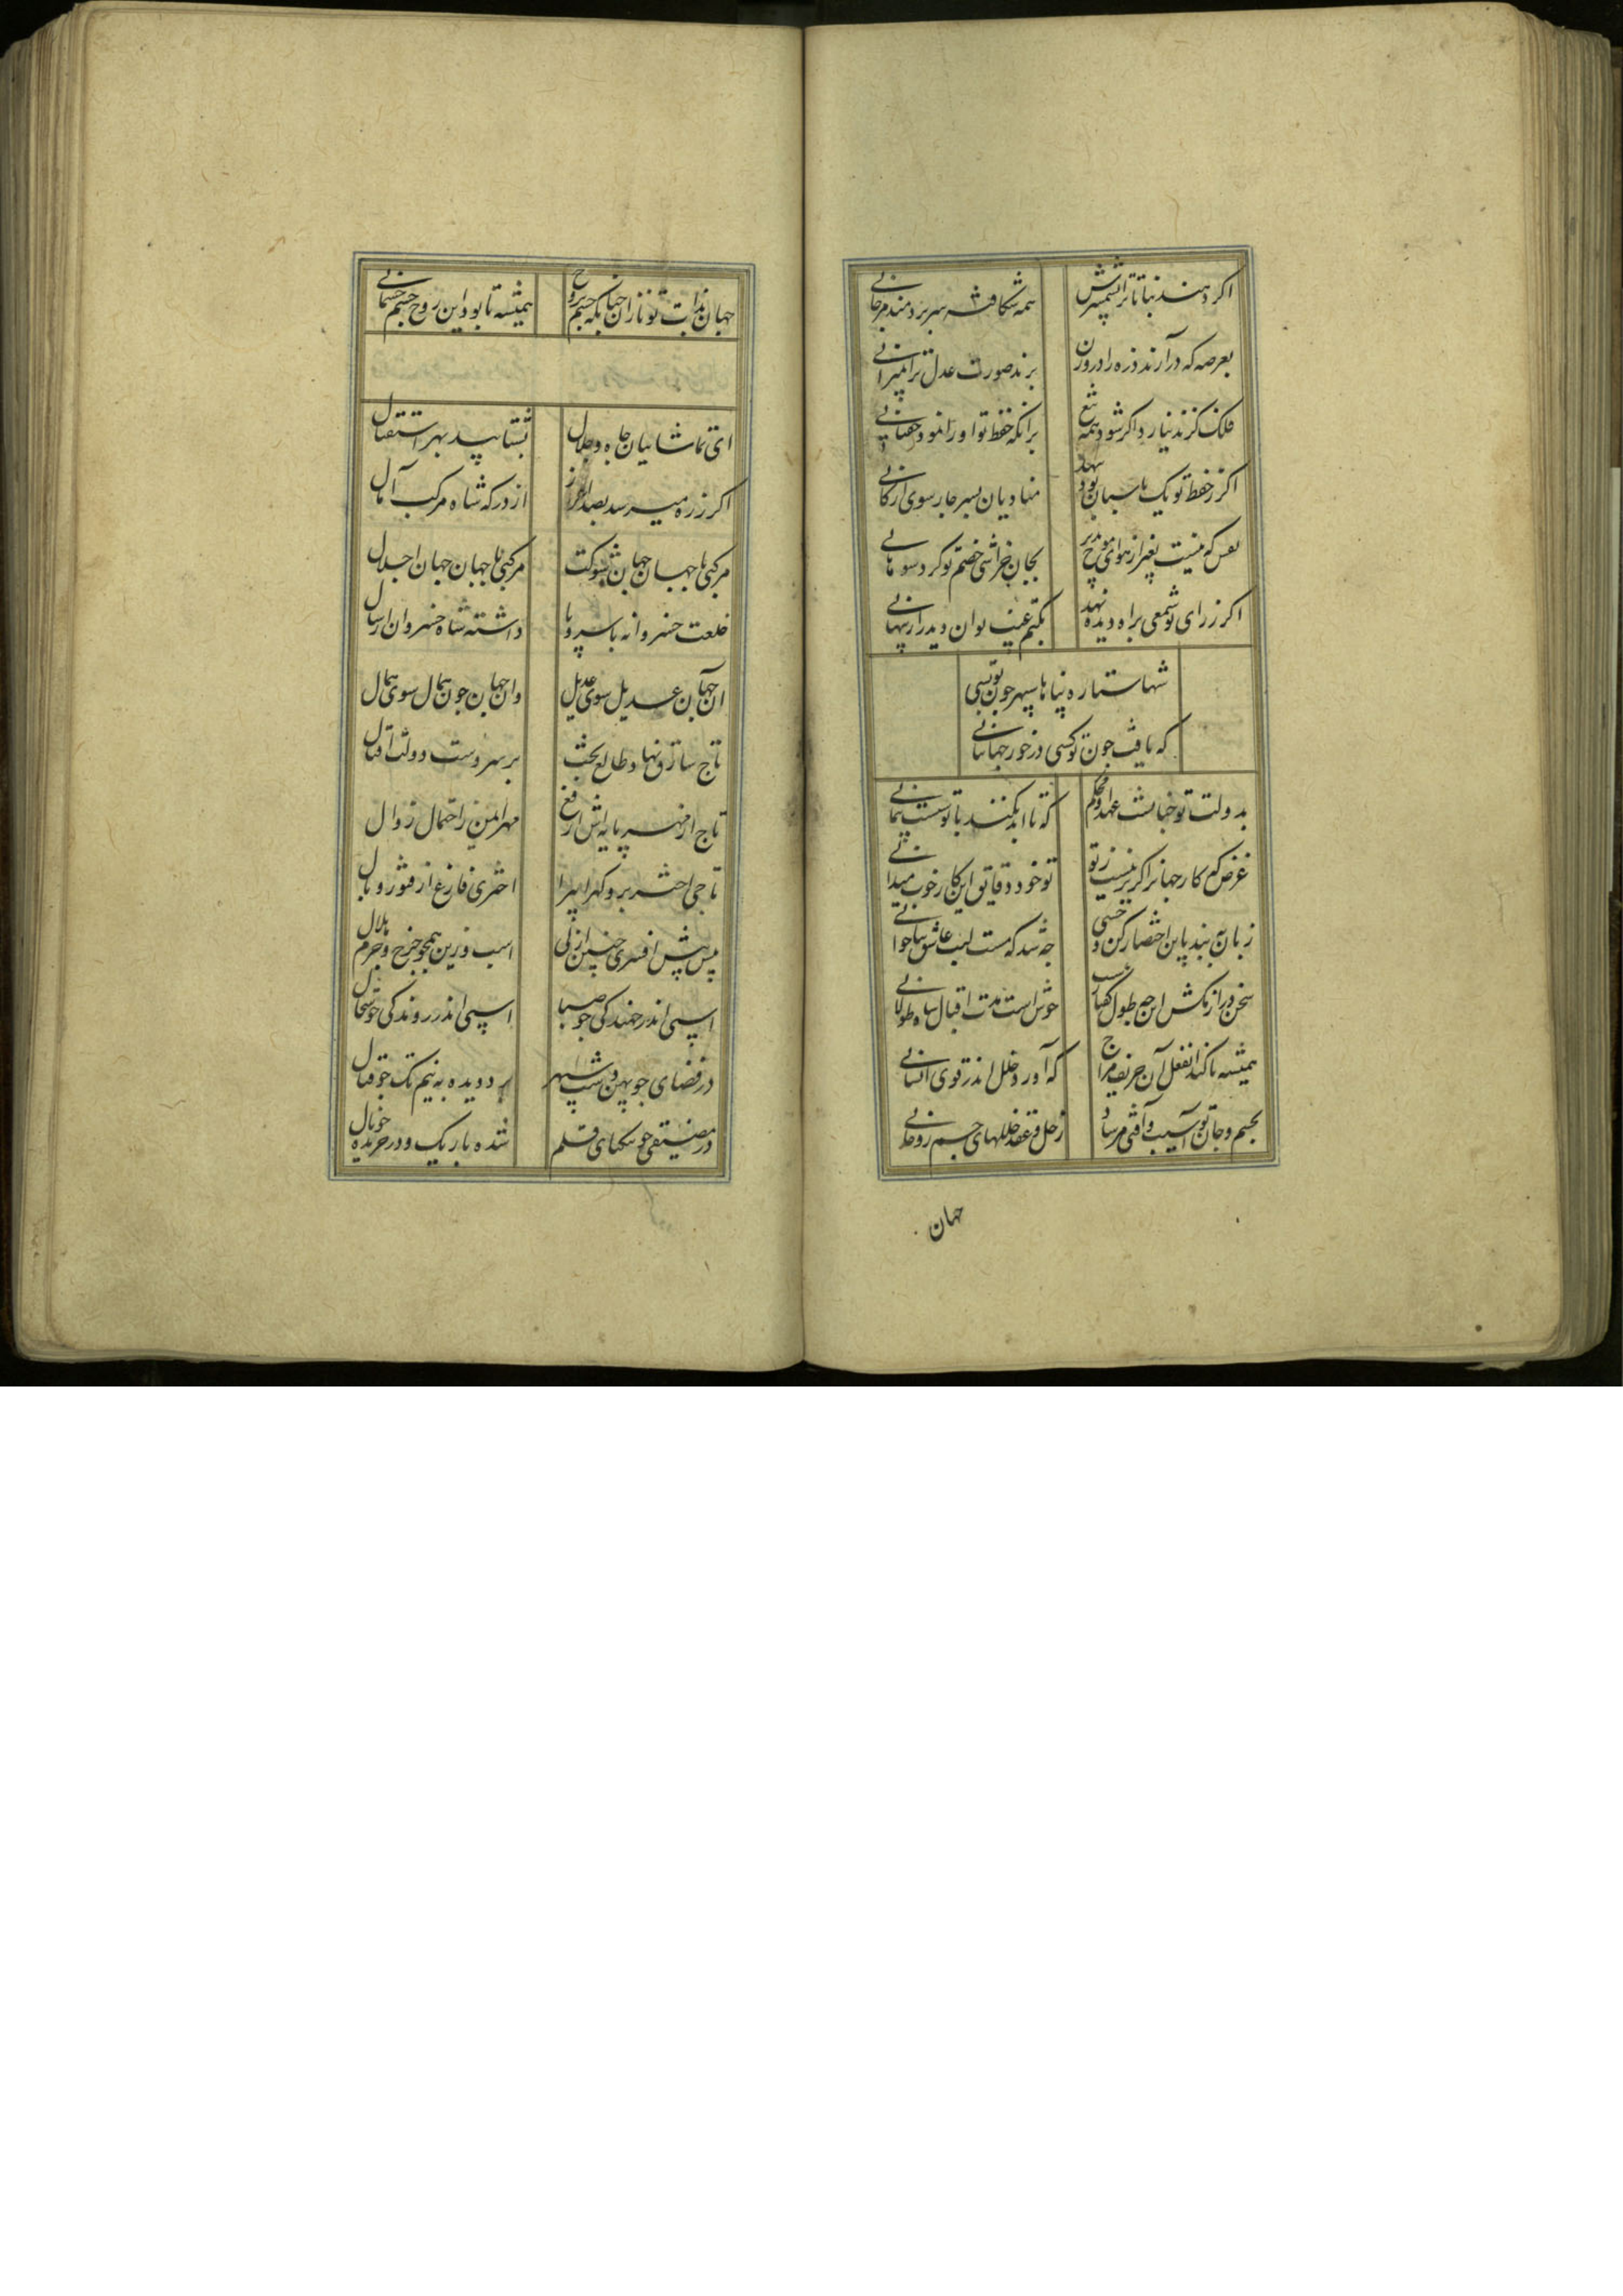 اکر دهند نباتات را شمشیرش همه شکافته سر بردمند مرجانی
بعرصه که درآرند ذره را در وزن برند صورت عدل ترا بمیزانی
فلک کزند نیارد اکر شود همه تیغ برانکه حفظ تو او را نمود خفتانی
اکر ز حفظ تو یک پاسبان بود منادیان بسر چارسوی ارکانی
بغیر از هوای بجان خراشی خصم تو کرد سوهانی
اکر ز رای تو شمعی براه دیده نهند بکتم غیب توان دید راز پنهانی
شها ستاره پناها سپهر چون تو بسی
که یافت چون تو کسی در خور جهانبانی
بدولت تو عهد او محکم که تا ابد نکند با تو سست پیمانی
غرض که کار جهان را کزیر نیست ز تو تو خود دقایق این کار خوب میدانی
زبان به بند باین اختصار کن وحشی چه شد که هست لبت عاشق ثناخوانی
سخن دراز مکش این چه طول خوش است مدت اقبال شاه طولانی
همیشه تا کند افعل آن که آورد خلل اندر قوی انسانی
بجسم و جان تو آسیب و آفتی مرساد خللهای جسم و روحانی
جهان
جهان بذات تو نازان چنانکه جسم بروح همیشه تا بود این روح جسم جسمانی
ای تماشاییان جاه و جلال بشتابید بهر استقبال
اکر ز ره میرسد بصد اعزاز از درکه شاه مرکب آمال
مرکبی با جهان جهان شوکت مرکبی با جهان جهان اجلال
خلعت خسروانه با سر و پا داشته شاه خسروان ارسال
آن جهان عدیل سوی عدیل وان جهان چون همال سوی همال
تاج تارک نهاد طالع بخت بر سر و دست دولت و اقبال
تاج از مهر پایه اش ارفع مهر ایمن ز احتمال زوال
تاجی اختر برو کهر پیرا اختری فارغ از فتور و وبال
پیش پیش افسری چنین از پی اسب و زین همچو چرخ و جرم هلال
اسپی اندر جهندکی چو صبا اسپی اندر روندکی چو شمال
در فضای چو پهن دشت سپهر بر دویده به نیم تک چو خیال
در مضیقی چو تنکنای قلم شده باریک و در خزیده چو نال